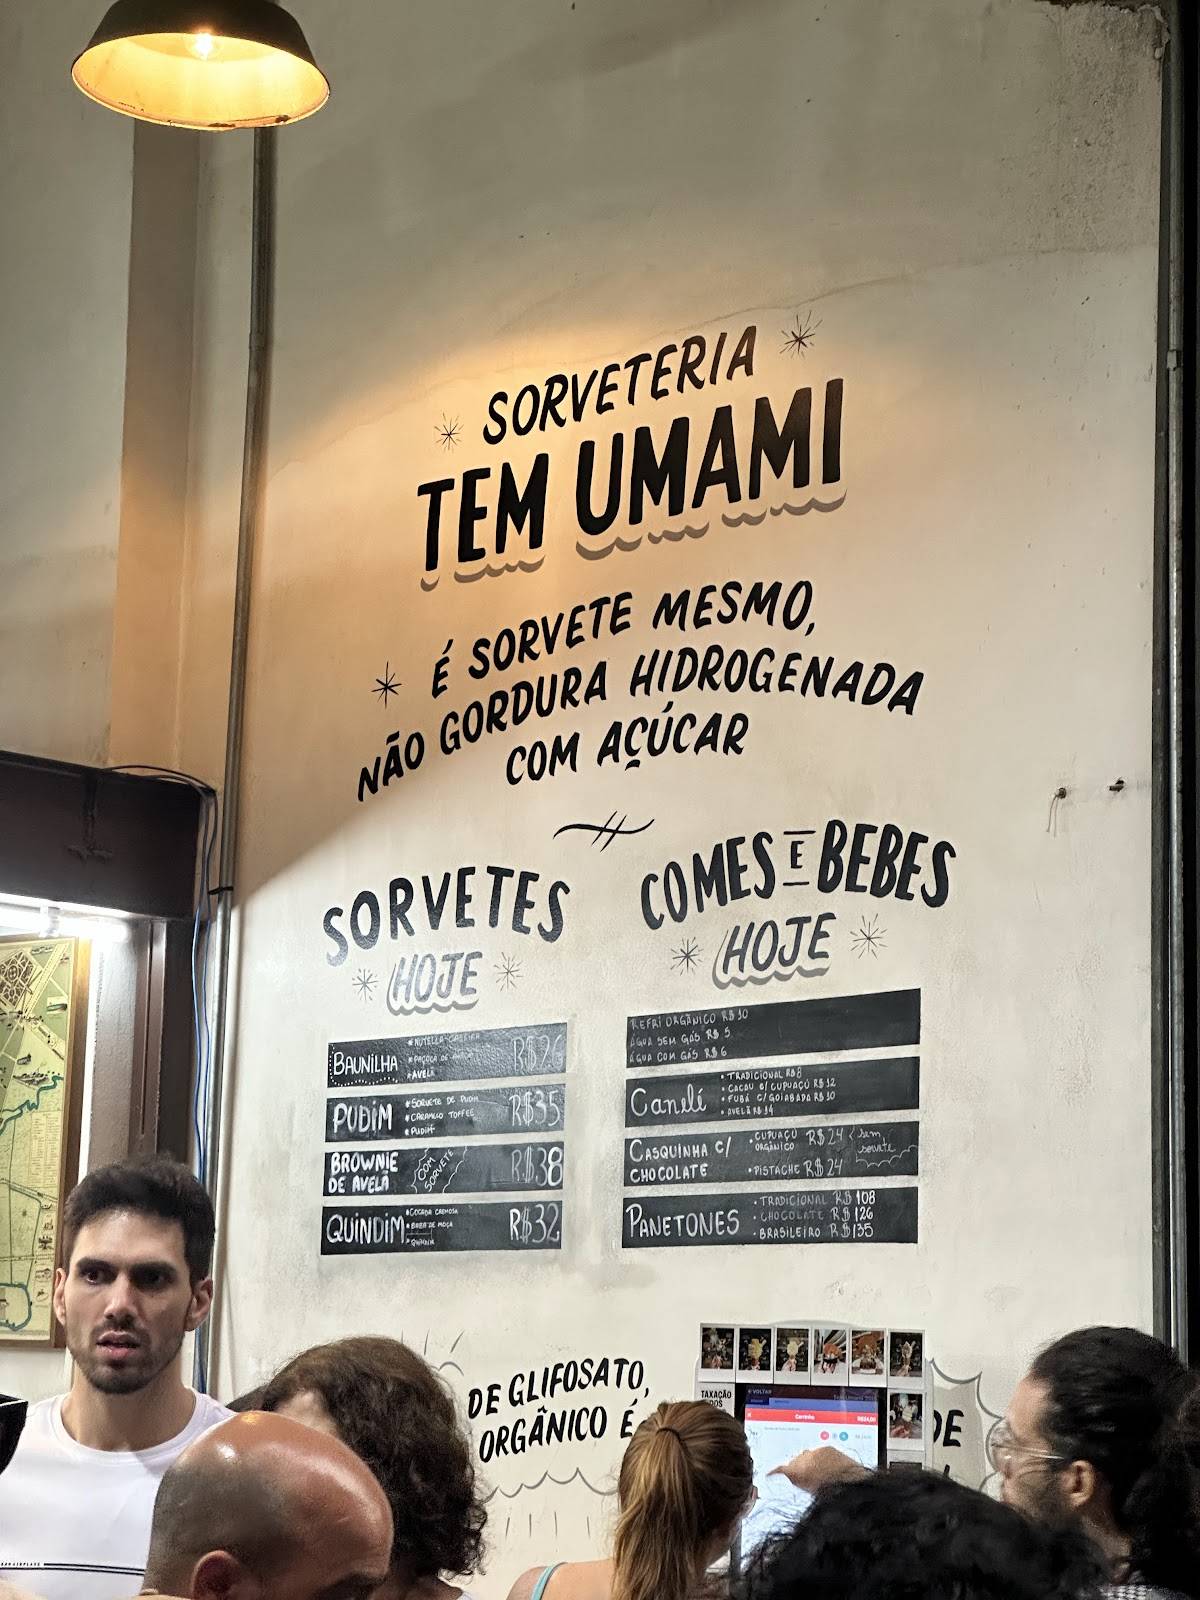 SORVETERIA
TEM UMAMI
É SORVETE MESMO,
NÃO GORDURA HIDROGENADA
COM AÇÚCAR
SORVETES
HOJE
BAUNILHA
NUTELLA CASEIRA
PAÇOCA DE
AVELÃ
R$26
PUDIM
SORVETE DE PUDIM
CARAMELO TOFFEE
PUDIM
R$35
BROWNIE
DE AVELÃ
COM
SORVETE
R$38
QUINDIM
COCADA CREMOSA
BABA DE MOÇA
QUINDIM
R$32
COMES E BEBES
HOJE
REFRI ORGÂNICO R$ 10
ÁGUA SEM GÁS R$ 5
ÁGUA COM GÁS R$ 6
Canelé
TRADICIONAL R$ 8
CACAU C/ CUPUAÇÚ R$ 12
FUBÁ C/ GOIABADA R$ 10
AVELÃ R$ 14
CASQUINHA C/
CHOCOLATE
CUPUAÇÚ
ORGÂNICO
R$ 24
PISTACHE R$ 24
sem
sorvete
PANETONES
TRADICIONAL R$ 108
CHOCOLATE R$ 126
BRASILEIRO R$ 135
DE GLIFOSATO,
ORGÂNICO É
DE
TAXAÇÃO
DOS
VOLTAR
Carrinho